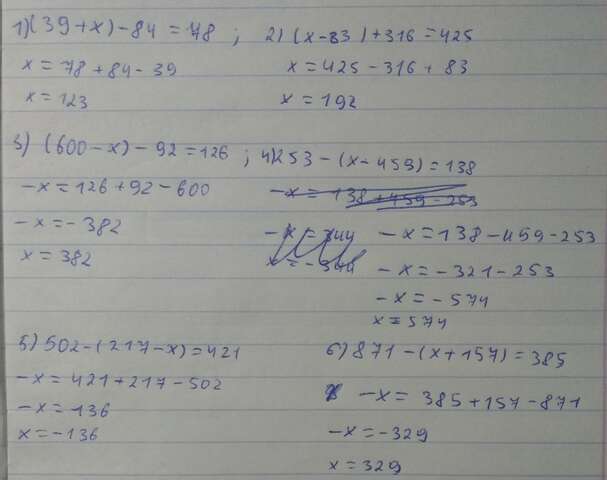 1) (39+x)-84=78 ; 2) (x-83)+316=425
x=78+84-39
x=425-316+83
x=123
x=192
3) (600-x)-92=126 ; 4) 253-(x-459)=138
-x=126+92-600
-x=138+459-253
-x=-382
x=382
-x=344
x=-344
-x=138-459-253
-x=-321-253
-x=-574
x=574
5) 502-(217-x)=421
-x=421+217-502
-x=136
x=-136
6) 871-(x+157)=385
-x=385+157-871
-x=-329
x=329